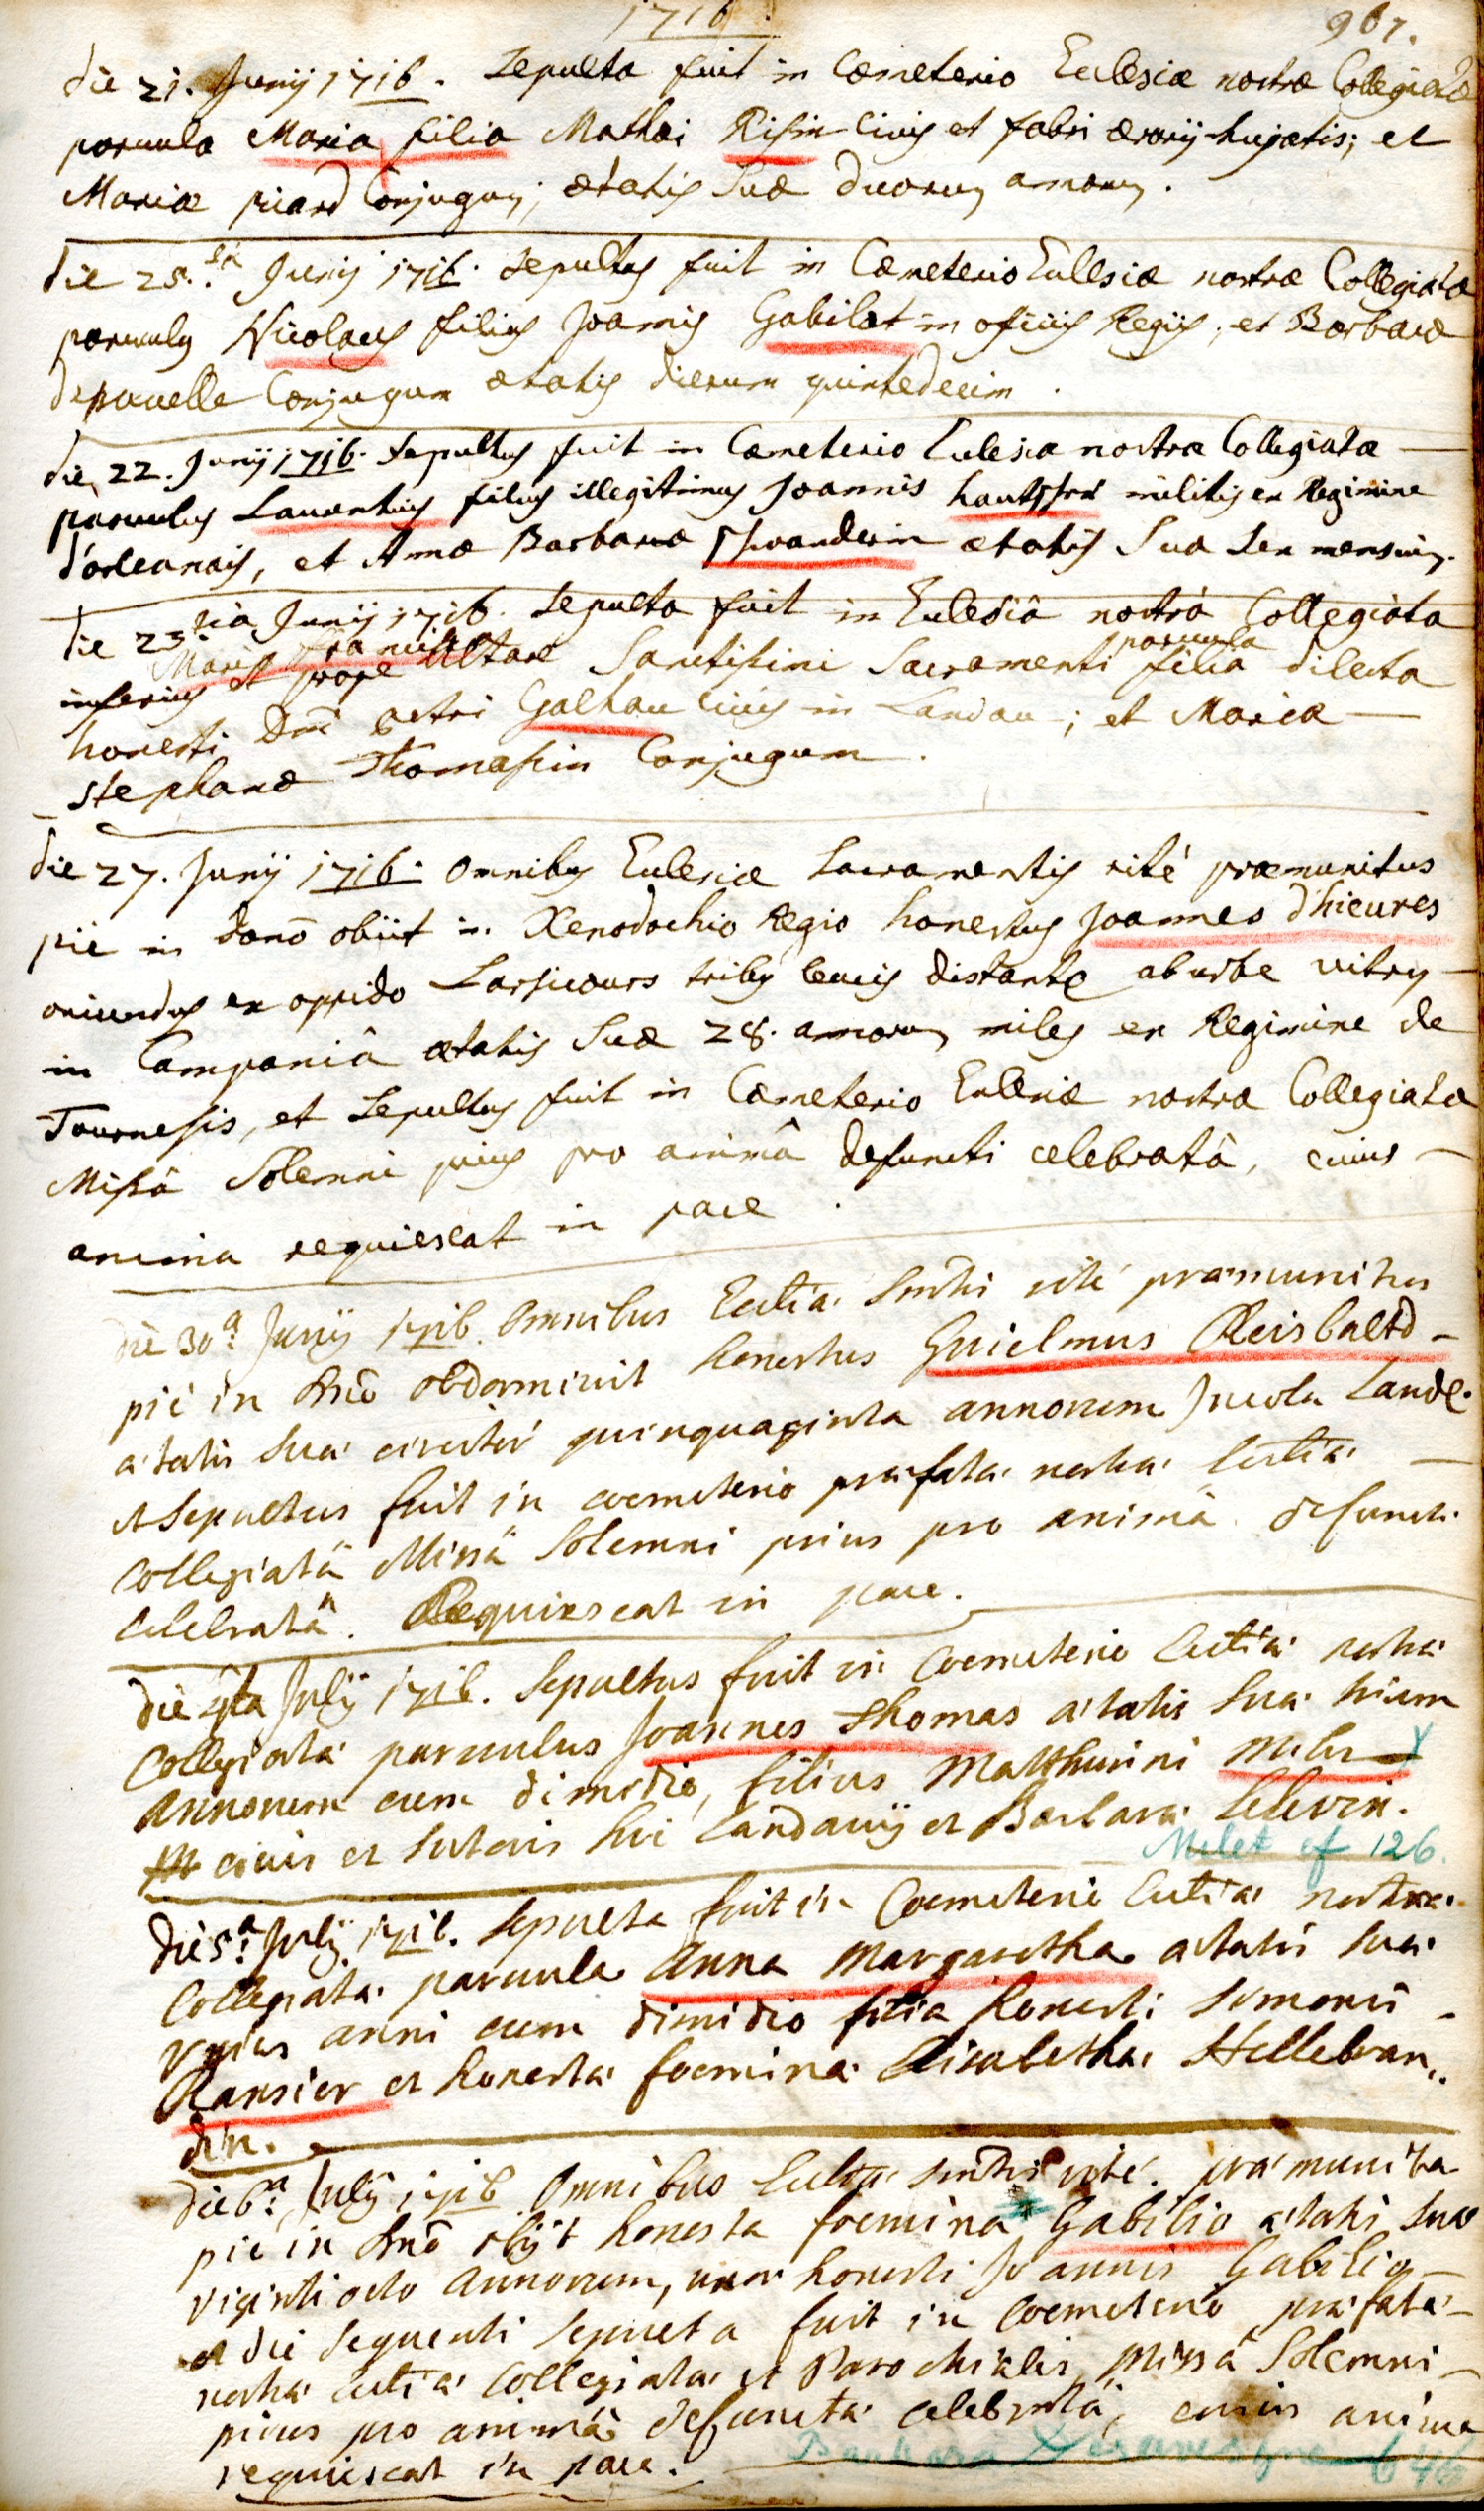 1716. 967.
die 21. Junij 1716. Sepulta fuit in Cæmeterio Eclesiæ nostræ Collegiatæ
parvula Maria filia Mathæi Risin civis et fabri ærarij hujatis; et
Mariæ picard Conjugum; ætatis Suæ duorum annorum.
die 25.ta Junij 1716. Sepultus fuit in Cæmeterio Eclesiæ nostræ Collegiatæ
parvulus Nicolaus filius Joannis Gabilot in oficiis Regijs; et Barbaræ
Conjugum ætatis dierum quindecim.
die 22. Junij 1716. Sepultus fuit in Cæmeterio Eclesiæ nostræ Collegiatæ —
parvulus Laurentius filius illegitimus Joannis militis ex Regimine
d'orleanais, et Annæ Barbaræ ætatis Suæ Sex mensium.
die 23.tia Junij 1716. Sepulta fuit in Eclesiâ nostrâ Collegiata
Maria francisca
inferius et prope Altare Sanctissimi Sacramenti parvula filia dilecta
honesti Dni petri Galhau civis in Landau; et Mariæ —
stephanæ Thomassin Conjugum.
die 27. Junij 1716. omnibus Eclesiæ Sacramentis rité præmunitus
pie in domō obiit in Xenodochio Regio honestus Joannes d'hieures
oriundus ex oppido Larsicours tribus leucis distante ab urbe vitry —
in Campaniâ ætatis Suæ 28. annorum miles ex Regimine de
Tournesis, et Sepultus fuit in Cæmeterio Eclesiæ nostræ Collegiatæ
Missâ Solemni prius pro animâ defuncti celebratâ, cuius —
anima requiescat in pace.
die 30.a Junij 1716. Omnibus Ecclīæ Smtis rité præmunitus
pié in Dnō obdormivit honestus Guielmus Reisbaltd —
ætatis suæ circiter quinquaginta annorum Incola Landæ.
et Sepultus fuit in coemeterio præfatæ nostræ Ecclīæ —
Collegiatâ Missâ Solemni prius pro animâ defuncti
celebratâ. Requiescat in pace.
die 4ta Julij 1716. Sepultus fuit in Coemeterio Ecclīæ nostræ
Collegiatæ parvulus Joannes Thomas ætatis suæ trium
Annorum cum dimidio, filius Matthurini Miler
civis et Sutoris hic Landavij et Barbaræ
Milet cf 126.
die 5.a Julij 1716. Sepulta fuit in Coemeterio Ecclīæ nostræ
Collegiatæ parvula Anna Margaretha ætatis suæ
Vnius anni cum dimidio filia honesti Simonis
Ransier et honestæ foeminæ Elisabethæ Hellebran,,
din.
die 6.a Julij 1716 Omnibus Ecclīæ Smtis rité præmunita
pié in Dnō obijt honesta foemina Gabilio ætatis suæ
viginti octo Annorum, uxor honesti Joannis Gabilio —
et die sequenti Sepulta fuit in Coemeterio præfatæ —
nostræ Ecclīæ Collegiatæ et Parochialis, Missâ Solemni —
prius pro animâ defunctæ celebratâ, cuius anima
requiescat in pace.